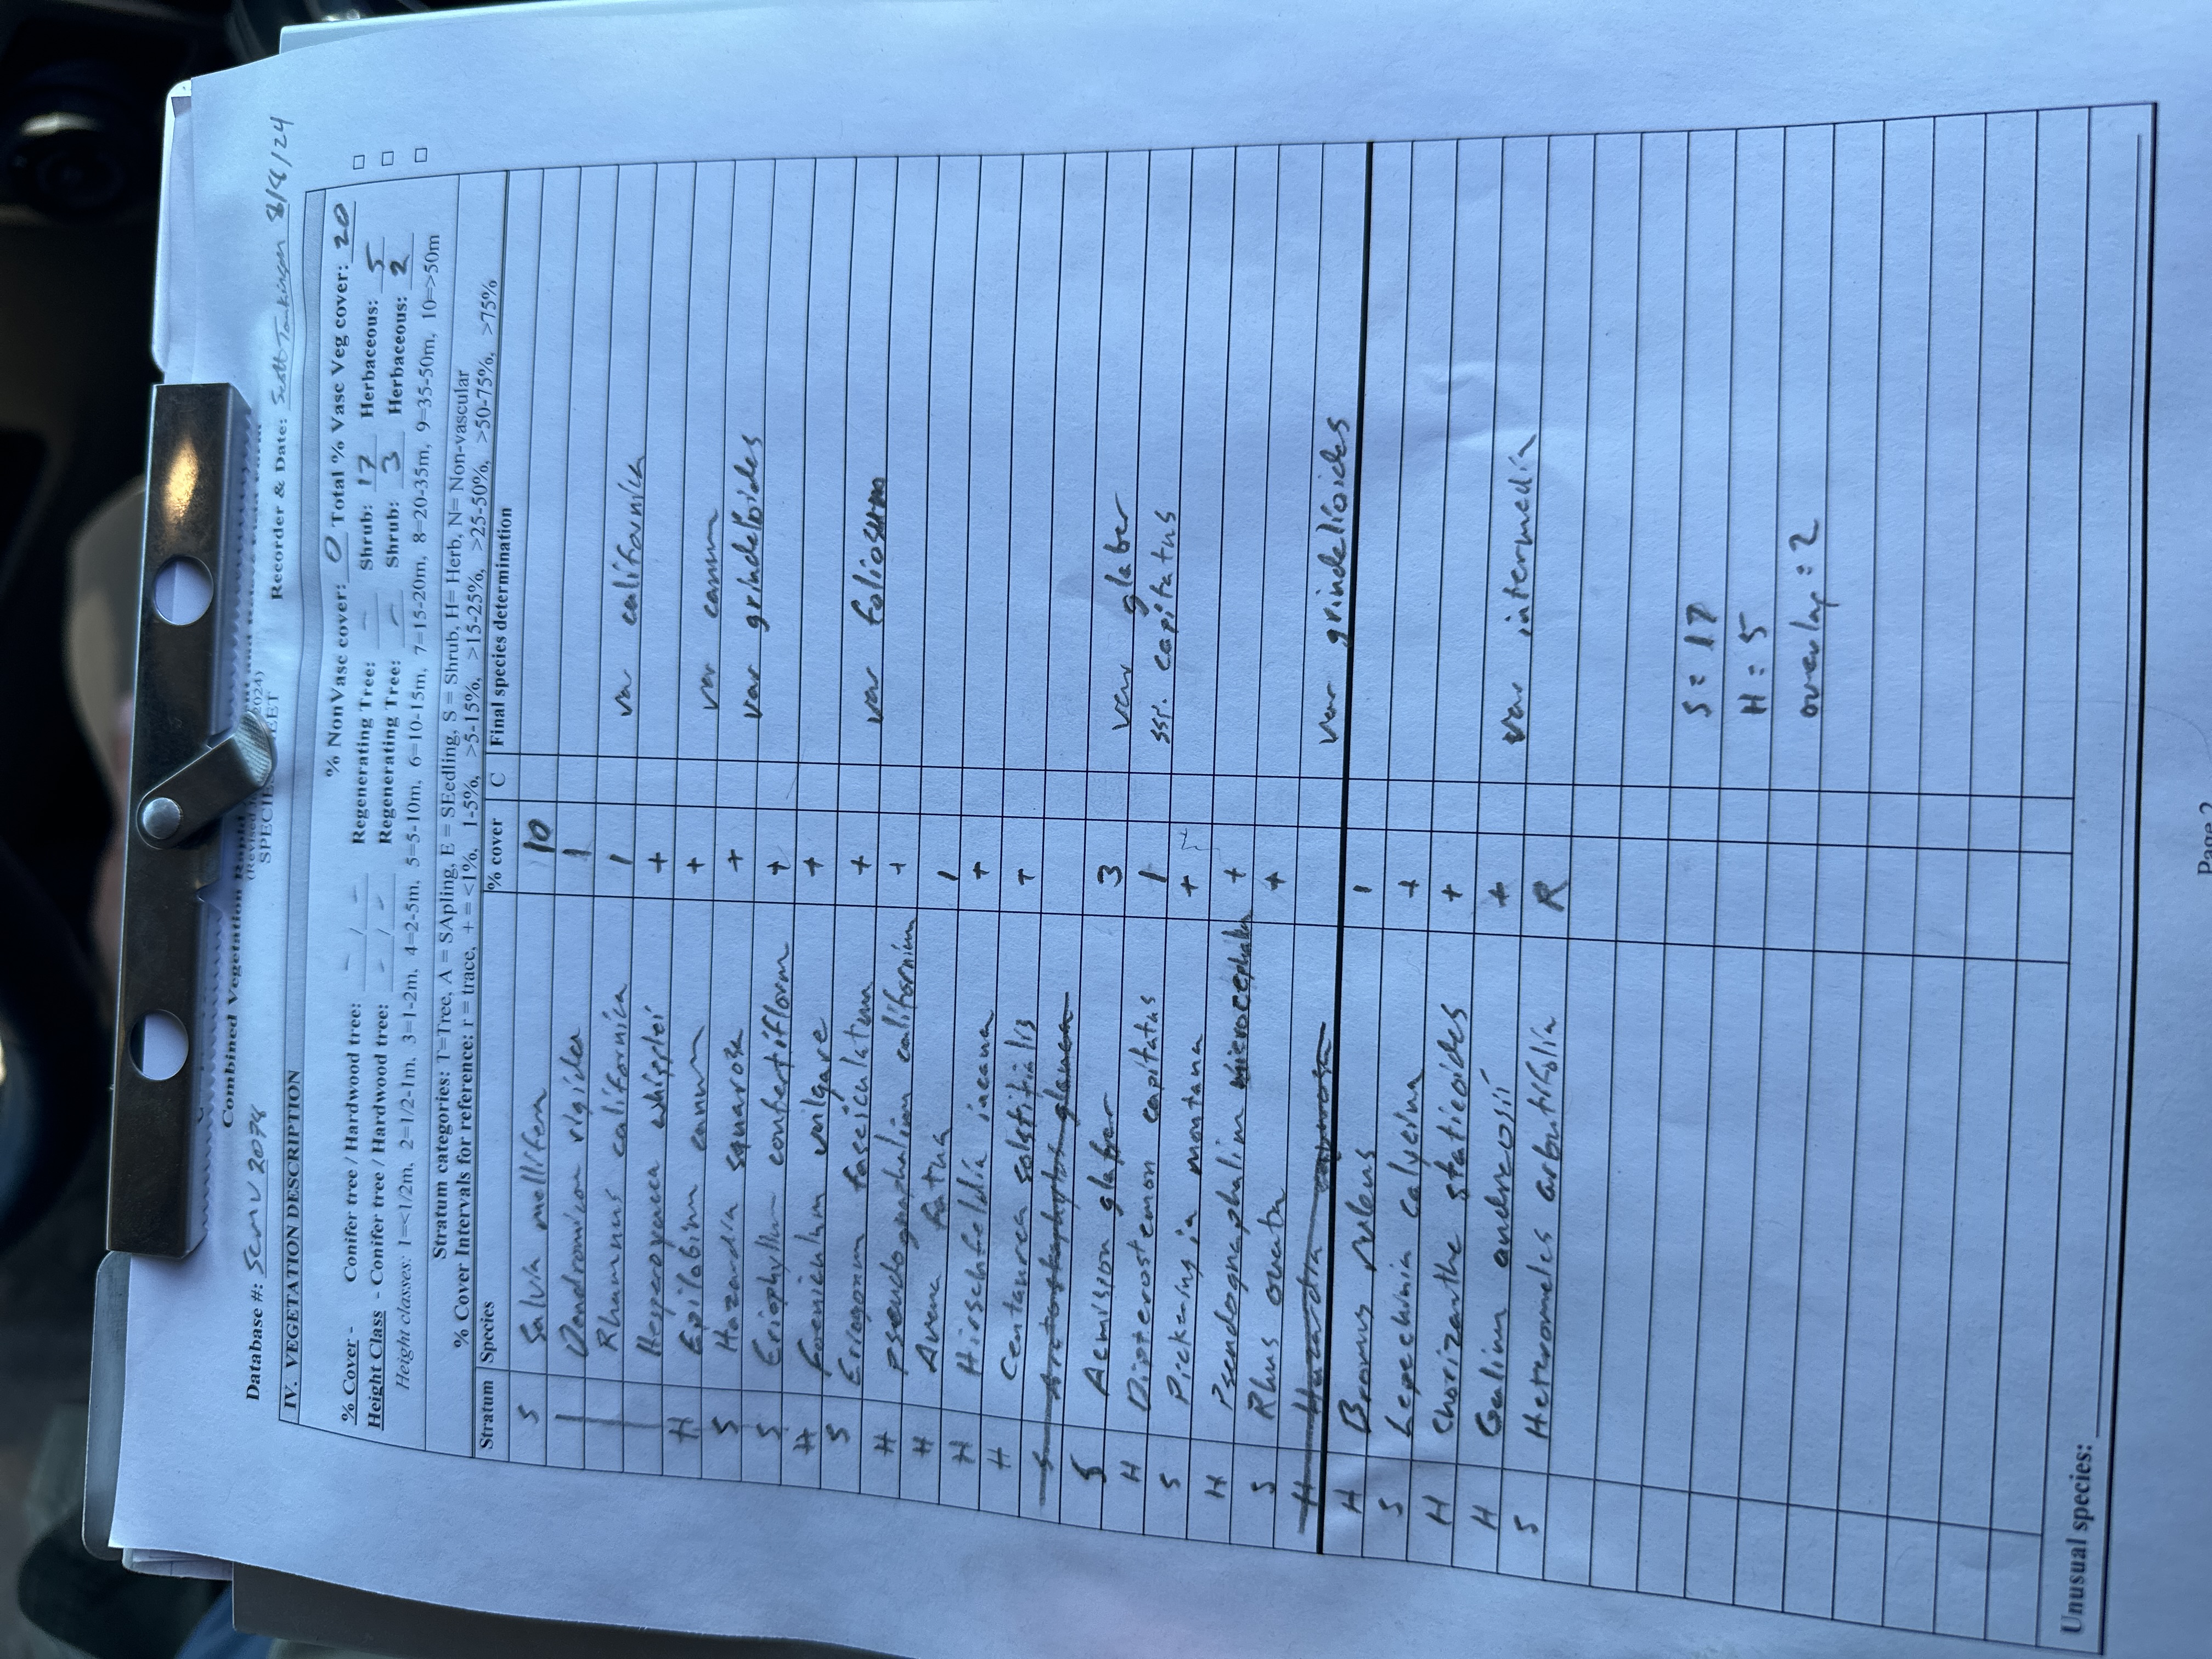 Combined Vegetation Rapid
(Revised 2024)
SPECIES SHEET
Database #: SCMV 2074 Recorder & Date: Scott 8/4/24
IV. VEGETATION DESCRIPTION
% NonVasc cover: 0 Total % Vasc Veg cover: 20
% Cover - Conifer tree / Hardwood tree: - / - Regenerating Tree: - Shrub: 17 Herbaceous: 5
Height Class - Conifer tree / Hardwood tree: - / - Regenerating Tree: - Shrub: 3 Herbaceous: 2
Height classes: 1=<1/2m, 2=1/2-1m, 3=1-2m, 4=2-5m, 5=5-10m, 6=10-15m, 7=15-20m, 8=20-35m, 9=35-50m, 10=>50m
Stratum categories: T=Tree, A = SApling, E = SEedling, S = Shrub, H= Herb, N= Non-vascular
% Cover Intervals for reference: r = trace, + = <1%, 1-5%, >5-15%, >15-25%, >25-50%, >50-75%, >75%
Stratum Species % cover C Final species determination
S Salvia mellifera 10
Dendromicon rigidea 1
Rhamnus californica 1 var californica
Hesperoyucca whipplei +
H Epilobium canum + var canum
S Hazardia squarosa + var grindelioides
S Eriophyllum confertiflorm +
H Foeniculum vulgare +
S Eriogonum fasciculatum + var foliosum
H Pseudognaphalium californium +
H Avena fatua 1
H Hirschfeldia incana +
H Centaurea solstitialis +
S Arctostaphylos glauca
S Acmispon glaber 3 var glaber
H Dipterostemon capitatus 1 ssp. capitatus
S Pickeringia montana +
H Pseudognaphalium microcephalum +
S Rhus ovata +
H Hazardia var grindelioides
H Bromus rubens 1
S Lepechinia calycina +
H Chorizanthe staticoides +
H Galium andrewsii +
S Heteromeles arbutifolia R var intermedia
S = 17
H = 5
overlap = 2
Unusual species:
Page 2